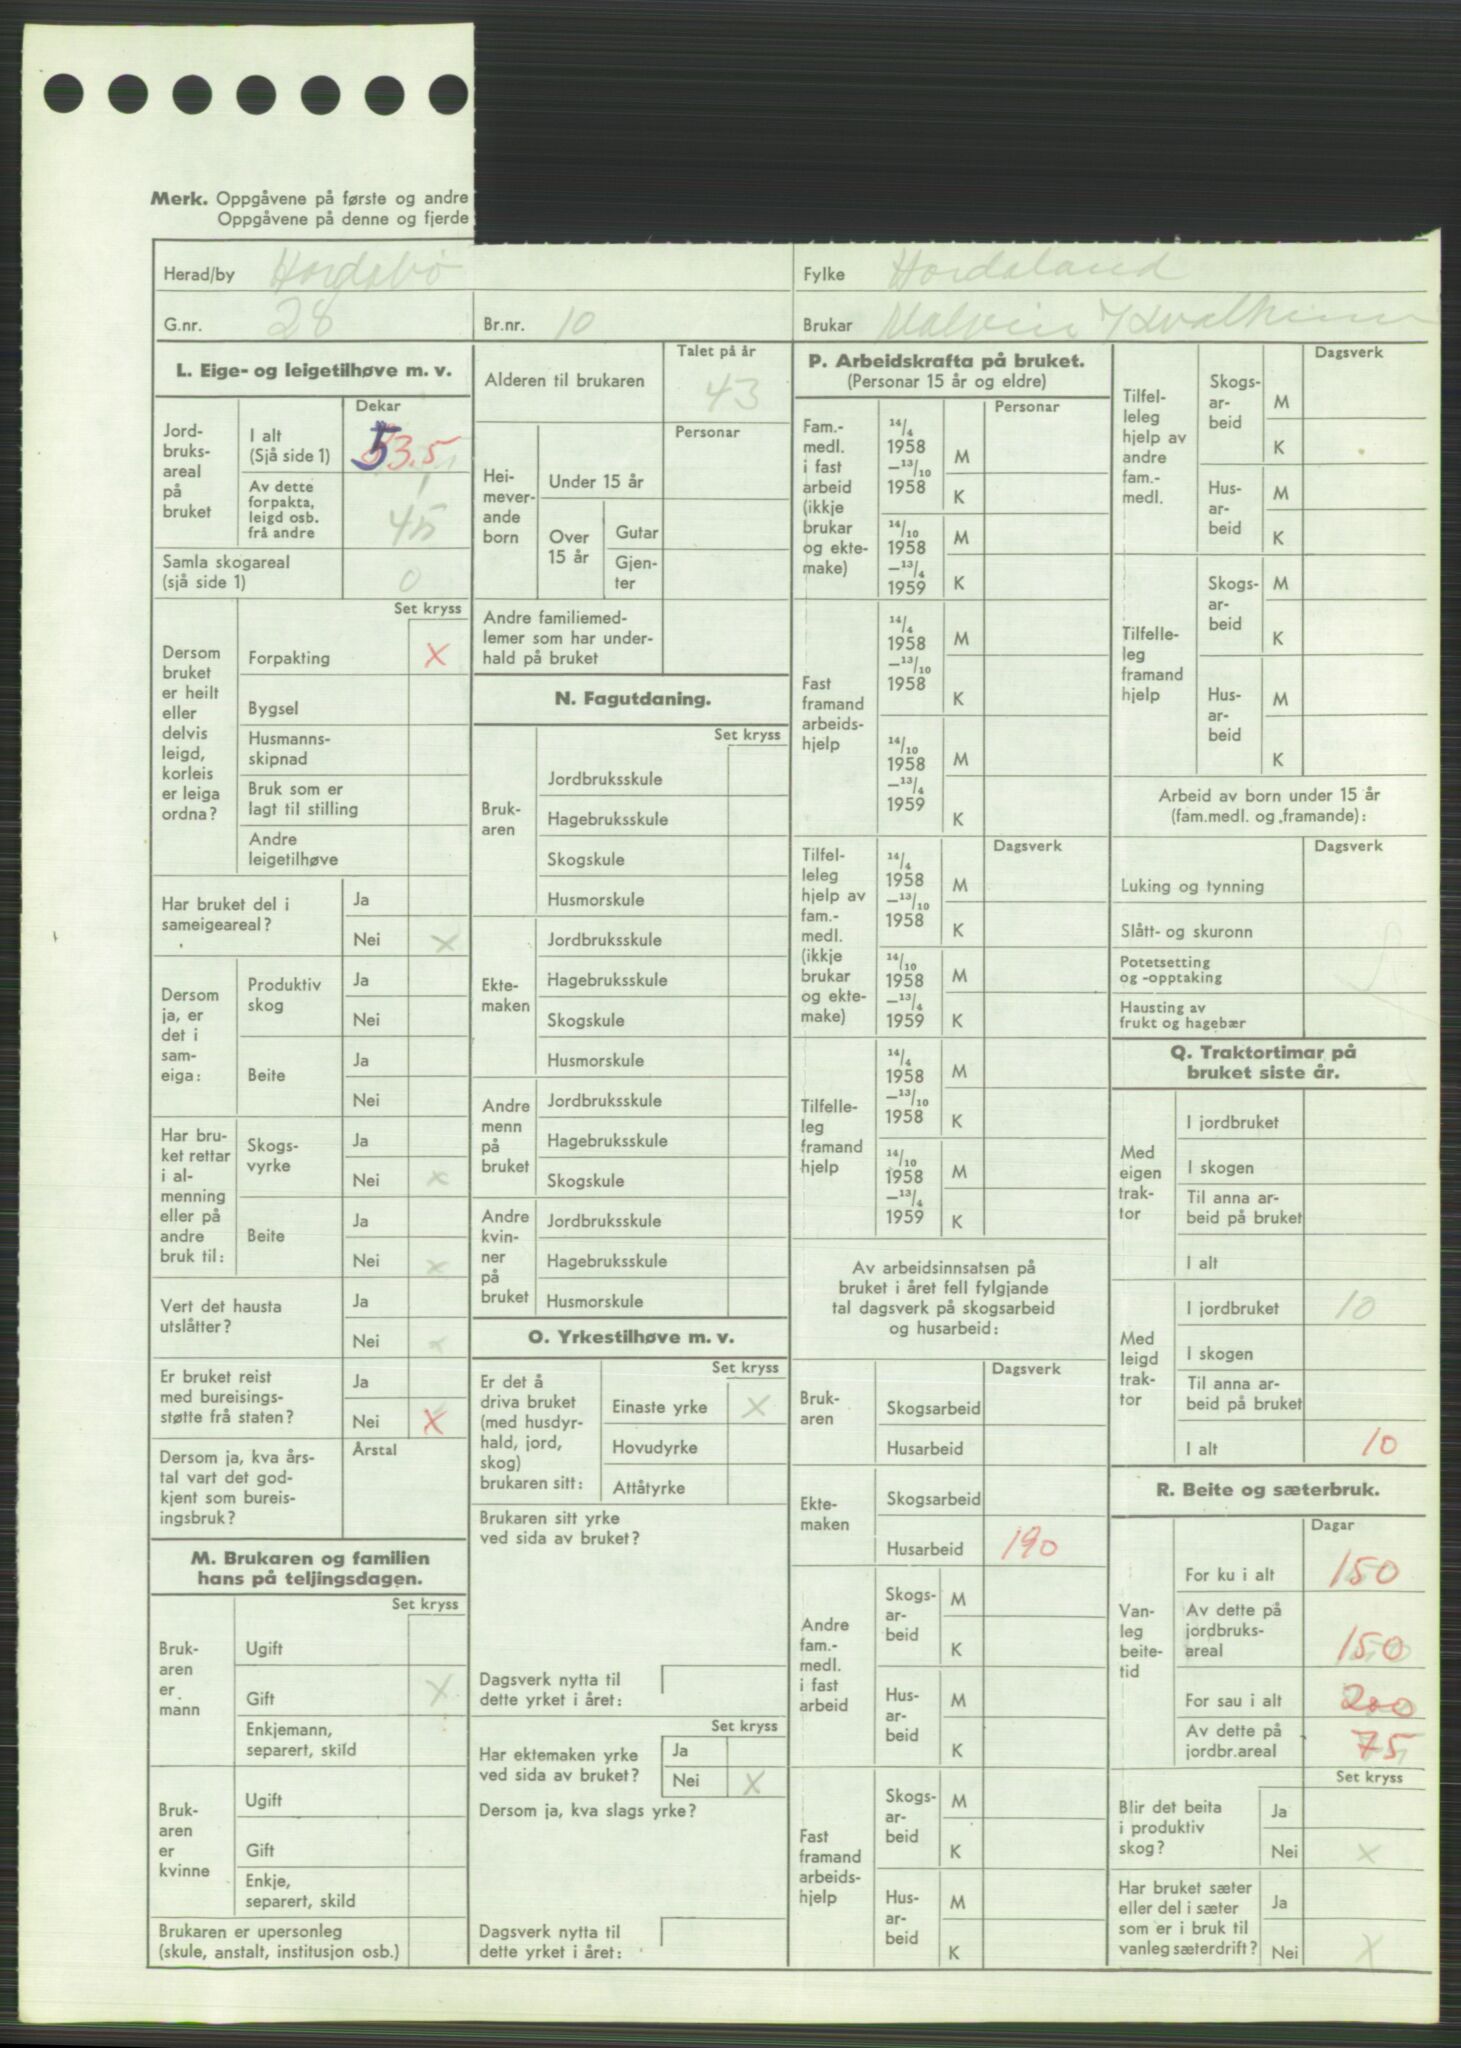 Merk. Oppgåvene på første og andre
Oppgåvene på denne og fjerde
Herad/by Hordabø
Fylke Hordaland
G.nr. 28
Br.nr. 10
Brukar Malvin Kvalheim
L. Eige- og leigetilhøve m. v.
Dekar
Jord-
bruks-
areal
på
bruket
I alt
(Sjå side 1) 53.5
Av dette
forpakta,
leigd osb.
frå andre 45
Samla skogareal
(sjå side 1) 0
Set kryss
Dersom
bruket
er heilt
eller
delvis
leigd,
korleis
er leiga
ordna?
Forpakting X
Bygsel
Husmanns-
skipnad
Bruk som er
lagt til stilling
Andre
leigetilhøve
Har bruket del i
sameigeareal?
Ja
Nei X
Dersom
ja, er
det i
sam-
eiga:
Produktiv
skog
Ja
Nei
Beite
Ja
Nei
Har bru-
ket rettar
i al-
menning
eller på
andre
bruk til:
Skogs-
vyrke
Ja
Nei x
Beite
Ja
Nei x
Vert det hausta
utslåtter?
Ja
Nei x
Er bruket reist
med bureisings-
støtte frå staten?
Ja
Nei X
Dersom ja, kva års-
tal vart det god-
kjent som bureis-
ingsbruk?
Årstal
M. Brukaren og familien
hans på teljingsdagen.
Set kryss
Bruk-
aren
er
mann
Ugift
Gift X
Enkjemann,
separert, skild
Bruk-
aren
er
kvinne
Ugift
Gift
Enkje,
separert, skild
Brukaren er upersonleg
(skule, anstalt, institusjon osb.)
Talet på år
Alderen til brukaren 43
Personar
Hei-
mever-
ande
born
Under 15 år
Over
15 år
Gutar
Gjen-
ter
Andre familiemed-
lemer som har under-
hald på bruket
N. Fagutdaning.
Set kryss
Bruk-
aren
Jordbruksskule
Hagebruksskule
Skogskule
Husmorskule
Ekte-
maken
Jordbruksskule
Hagebruksskule
Skogskule
Husmorskule
Andre
menn
på
bruket
Jordbruksskule
Hagebruksskule
Skogskule
Andre
kvin-
ner
på
bruket
Jordbruksskule
Hagebruksskule
Husmorskule
O. Yrkestilhøve m. v.
Set kryss
Er det å
driva bruket
(med husdyr-
hald, jord,
skog)
brukaren sitt:
Einaste yrke X
Hovudyrke
Attåtyrke
Brukaren sitt yrke
ved sida av bruket?
Dagsverk nytta til
dette yrket i året:
Set kryss
Har ektemaken yrke
ved sida av bruket?
Ja
Nei X
Dersom ja, kva slags yrke?
Dagsverk nytta til
dette yrket i året:
P. Arbeidskrafta på bruket.
(Personar 15 år og eldre)
Personar
Fam.-
medl.
i fast
arbeid
(ikkje
brukar
og ekte-
make)
14/4
1958
—13/10
1958
M
K
14/10
1958
—13/4
1959
M
K
Fast
framand
arbeids-
hjelp
14/4
1958
—13/10
1958
M
K
14/10
1958
—13/4
1959
M
K
Dagsverk
Tilfel-
leleg
hjelp av
fam.-
medl.
(ikkje
brukar
og ekte-
make)
14/4
1958
—13/10
1958
M
K
14/10
1958
—13/4
1959
M
K
Tilfelle-
leg
framand
hjelp
14/4
1958
—13/10
1958
M
K
14/10
1958
—13/4
1959
M
K
Av arbeidsinnsatsen på
bruket i året fell fylgjande
tal dagsverk på skogsarbeid
og husarbeid:
Dagsverk
Bruk-
aren
Skogsarbeid
Husarbeid
Ekte-
maken
Skogsarbeid
Husarbeid 190
Andre
fam.-
medl.
i fast
arbeid
Skogs-
ar-
beid
M
K
Hus-
ar-
beid
M
K
Fast
framand
arbeids-
hjelp
Skogs-
ar-
beid
M
K
Hus-
ar-
beid
M
K
Dagsverk
Tilfel-
leleg
hjelp av
andre
fam.-
medl.
Skogs-
ar-
beid
M
K
Hus-
ar-
beid
M
K
Tilfelle-
leg
framand
hjelp
Skogs-
ar-
beid
M
K
Hus-
ar-
beid
M
K
Arbeid av born under 15 år
(fam.medl. og framande):
Dagsverk
Luking og tynning
Slått- og skuronn
Potetsetting
og -opptaking
Hausting av
frukt og hagebær
Q. Traktortimar på
bruket siste år.
Med
eigen
trak-
tor
I jordbruket
I skogen
Til anna ar-
beid på bruket
I alt
Med
leigd
trak-
tor
I jordbruket 10
I skogen
Til anna ar-
beid på bruket
I alt 10
R. Beite og sæterbruk.
Dagar
Van-
leg
beite-
tid
For ku i alt 150
Av dette på
jordbruks-
areal 150
For sau i alt 200
Av dette på
jordbr.areal 75
Set kryss
Blir det beita
i produktiv
skog?
Ja
Nei x
Har bruket sæter
eller del i sæter
som er i bruk til
vanleg sæterdrift?
Ja
Nei X